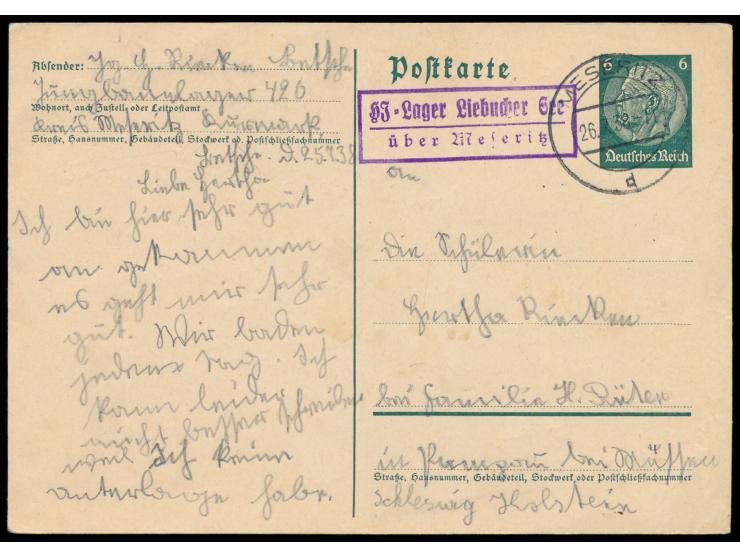 Absender: Jg. H. Rieken Betsche
Jungbannlager 426
Wohnort, auch Zustell- oder Leitpostamt
Kreis Meseritz Kurmark
Straße, Hausnummer, Gebäudeteil, Stockwerk od. Postschließfachnummer
Betsche d. 25.7.38
Liebe Hertha
Ich bin hier sehr gut
an gekommen
es geht mir sehr
gut. Wir baden
jeden Tag. Ich
kann leider
nicht besser schreiben
weil Ich keine
unterlage habe.
Postkarte
HJ-Lager Liebucher See
über Meseritz
MESERITZ
26.
d
6 6
Deutsches Reich
An
die Schülerin
Hertha Rieken
bei Familie H. Rüter
in Pampau bei Müssen
Straße, Hausnummer, Gebäudeteil, Stockwerk oder Postschließfachnummer
Schleswig Holstein